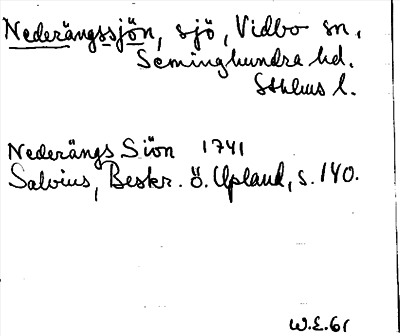 Nederängssjön, sjö, Vidbo sn,
Seminghundra hd.
Sthlms l.
Nederängs Siön 1741
Salvius, Beskr. ö. Upland, s. 140.
W.E.61